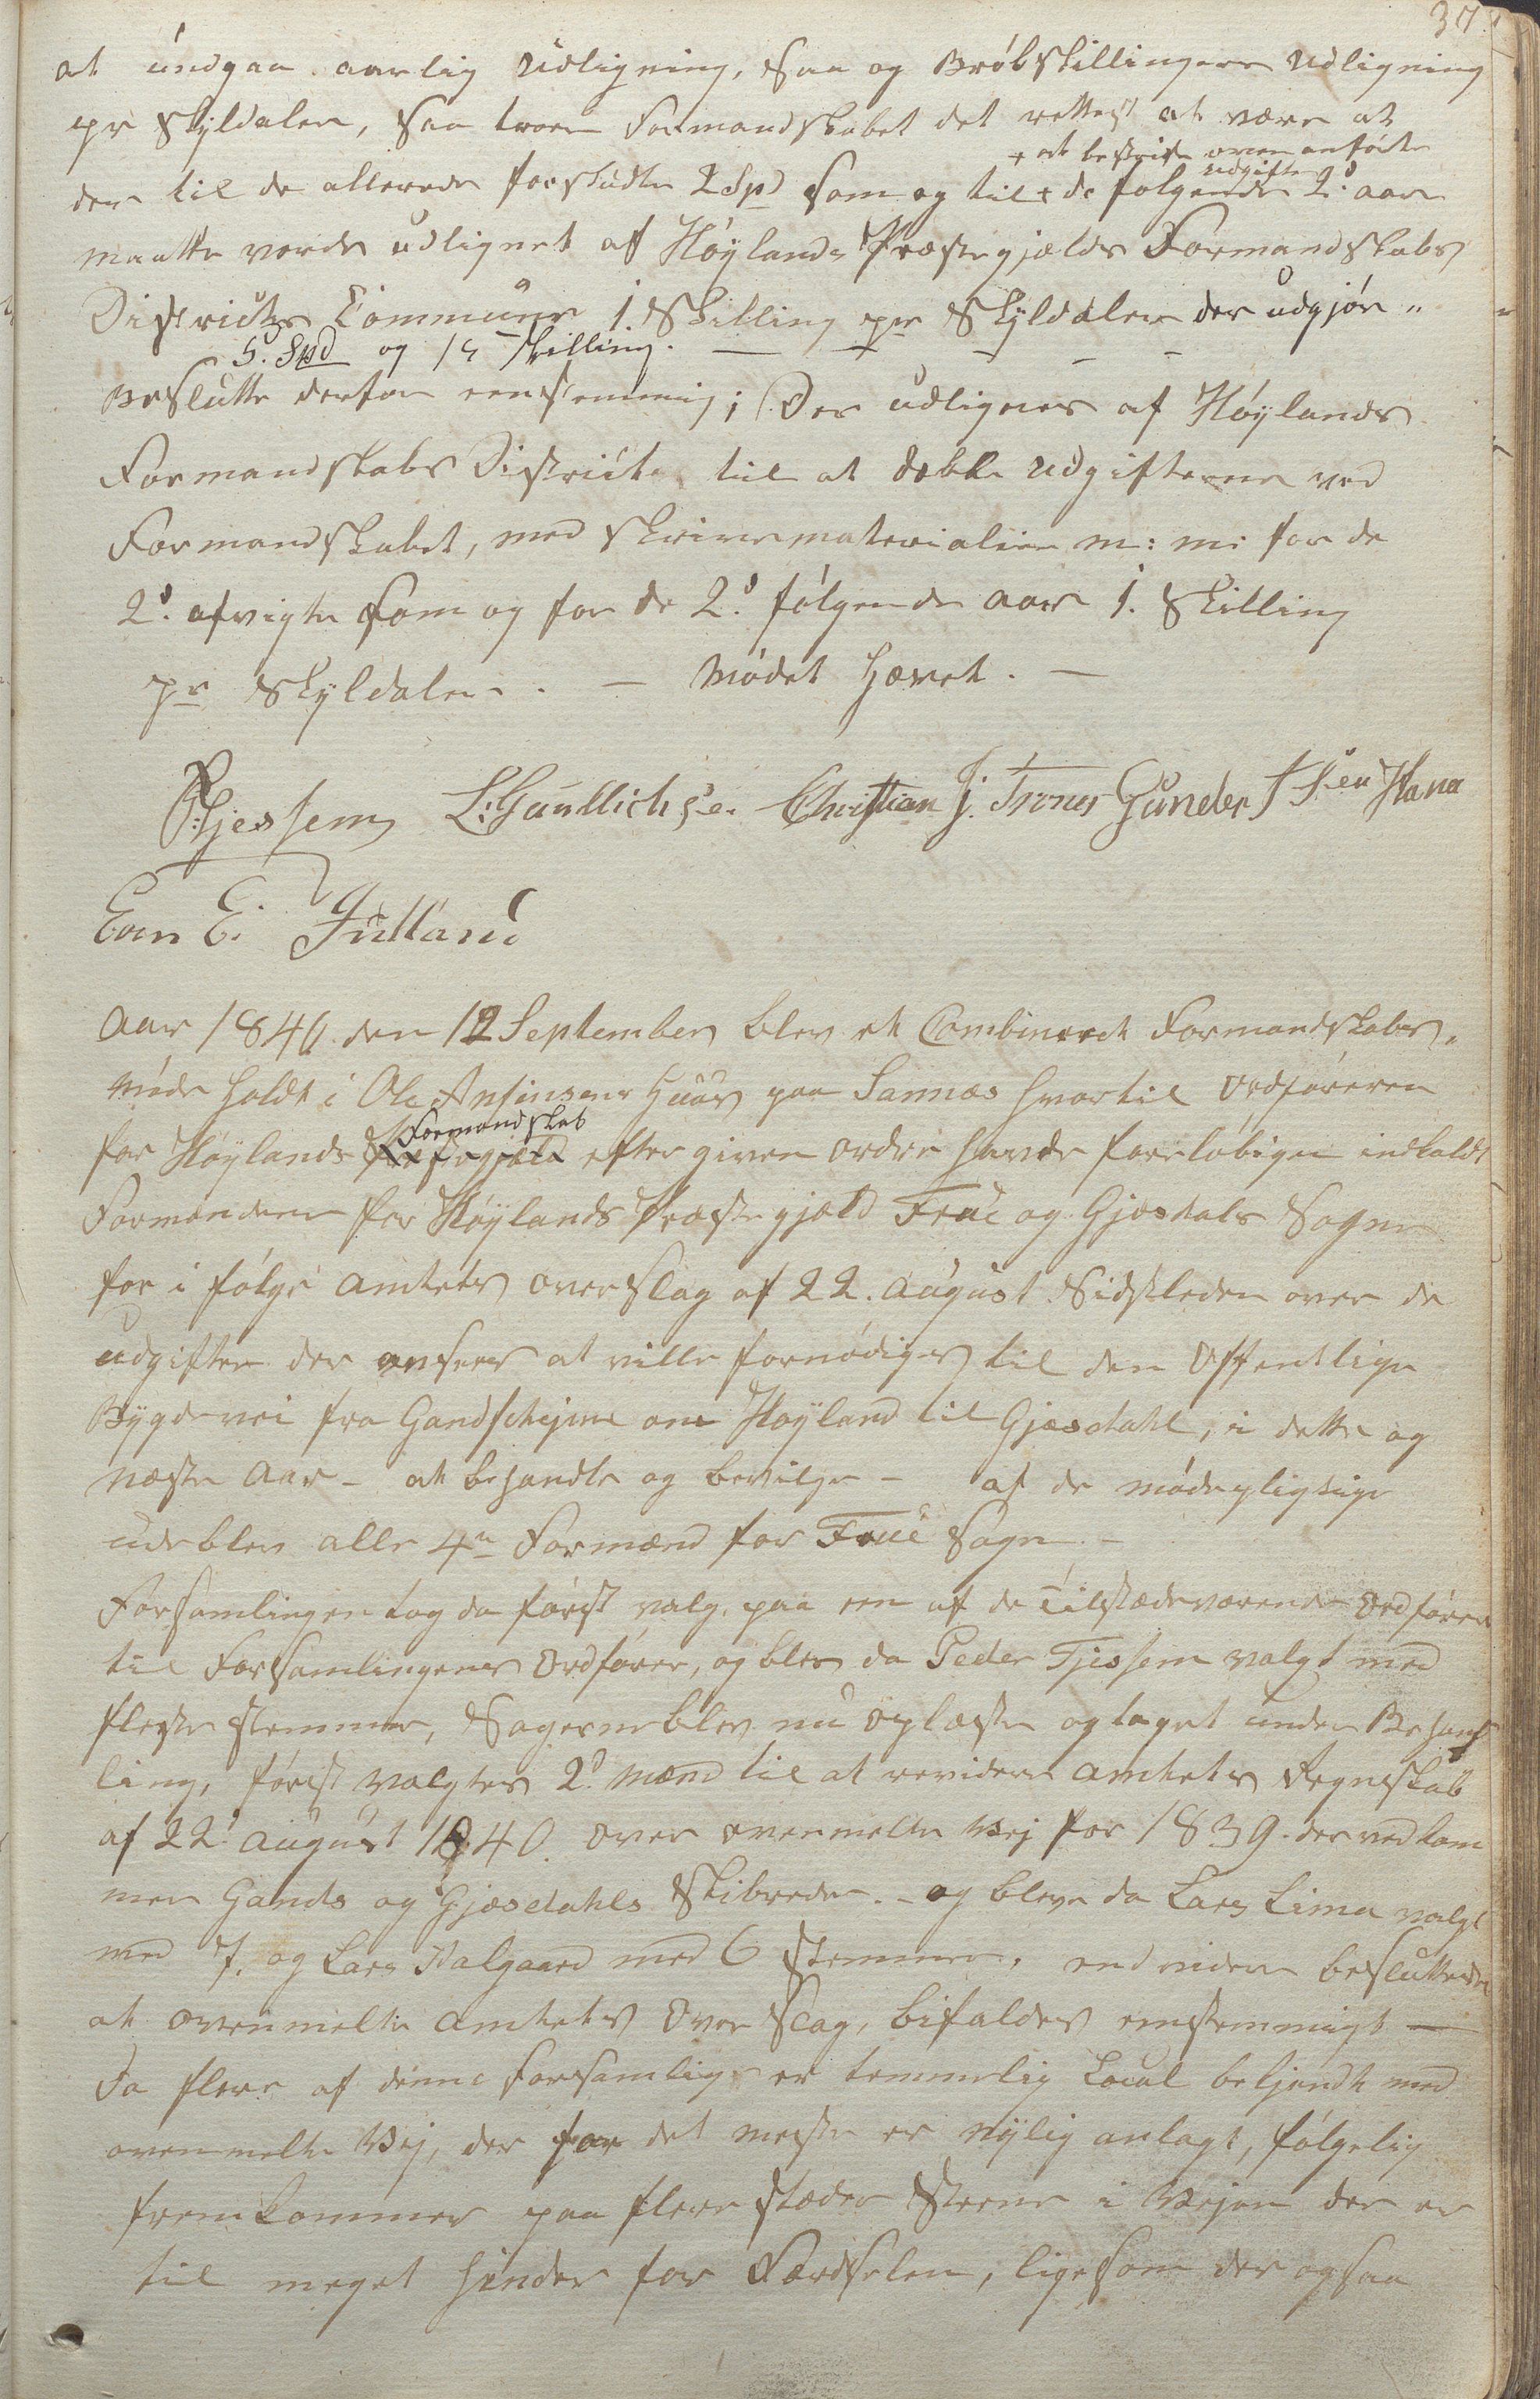 37.
at undgaa aarlig Udligning, saa og Brøkskillingers Udligning
pr Skyldaler, saa troer Formandskabet det rettest at være at
+ at bestride ovenanførte
udgifter
der til de allerede forskudte 2 Spd som og til + de følgende 2de aar
maatte vorde udlignet af Høylands Præstegjælds Formandskabs
Districts Commune 1 Skilling pr Skyldaler der udgjør "
5. Spd og 15 skilling. — — — — —
Beslutte derfor eenstemmig; Der udlignes af Høylands
Formandskabs District til at dække Udgifterne ved
Formandskabet, med Skrivematerialier m: m: for de
2de afvigte som og for de 2de følgende aar 1. Skilling
pr Skyldaler. — Mødet hævet. —
P. Tjessem L. Gundlichsen Christian J. Trones Gunder T Hana
E. Jutland
Aar 1840 den 12 September blev et Combineret Formandskabs-
Møde holdt i Ole Huus paa Sannæs hvortil Ordføreren
Formandskab
for Høylands Præstegjæld efter given ordre havde foreløbigen indkaldt
Formændene for Høylands Præstegjæld Frue og Gjesdals Sogne
for i følge Amtets overslag af 22. August Sidstleden over de
udgifter der ansees at ville fornødiges til den Offentlige
Bygdevei fra Gandschejene om Høyland til Gjæsdahl, i dette og
næste Aar - at behandle og bevilge - af de mødepligtige
udeblev alle 4re Formænd for Frue Sogn. -
Forsamlingen tog da først valg paa een af de Tilstædeværende Ordfører
til Forsamlingens Ordfører, og blev da Peder Tjessem valgt med
fleste stemmer, Sagerne blev nu oplæste og taget under Behand
ling, først valgtes 2de Mænd til at revidere Amtets Regnskab
af 22de August 1840 over ovenmelte Vej for 1839. der vedkom
mer Gands og Gjæsdahls Skibreder. - og bleve da Lars Lima valgt
med 7. og Lars Aalgaard med 6 Stemmer, end videre besluttedes
at ovenmelte Amtets Over Slag, bifaldes eenstemmigt —
Da flere af denne Forsamling er temmelig Local bekjendt med
ovenmelte Vej, der for det meste er nylig anlagt, følgelig
fremkommer paa flere stæder Steene i Vejen der er
til meget hinder for Færdselen, ligesom der ogsaa